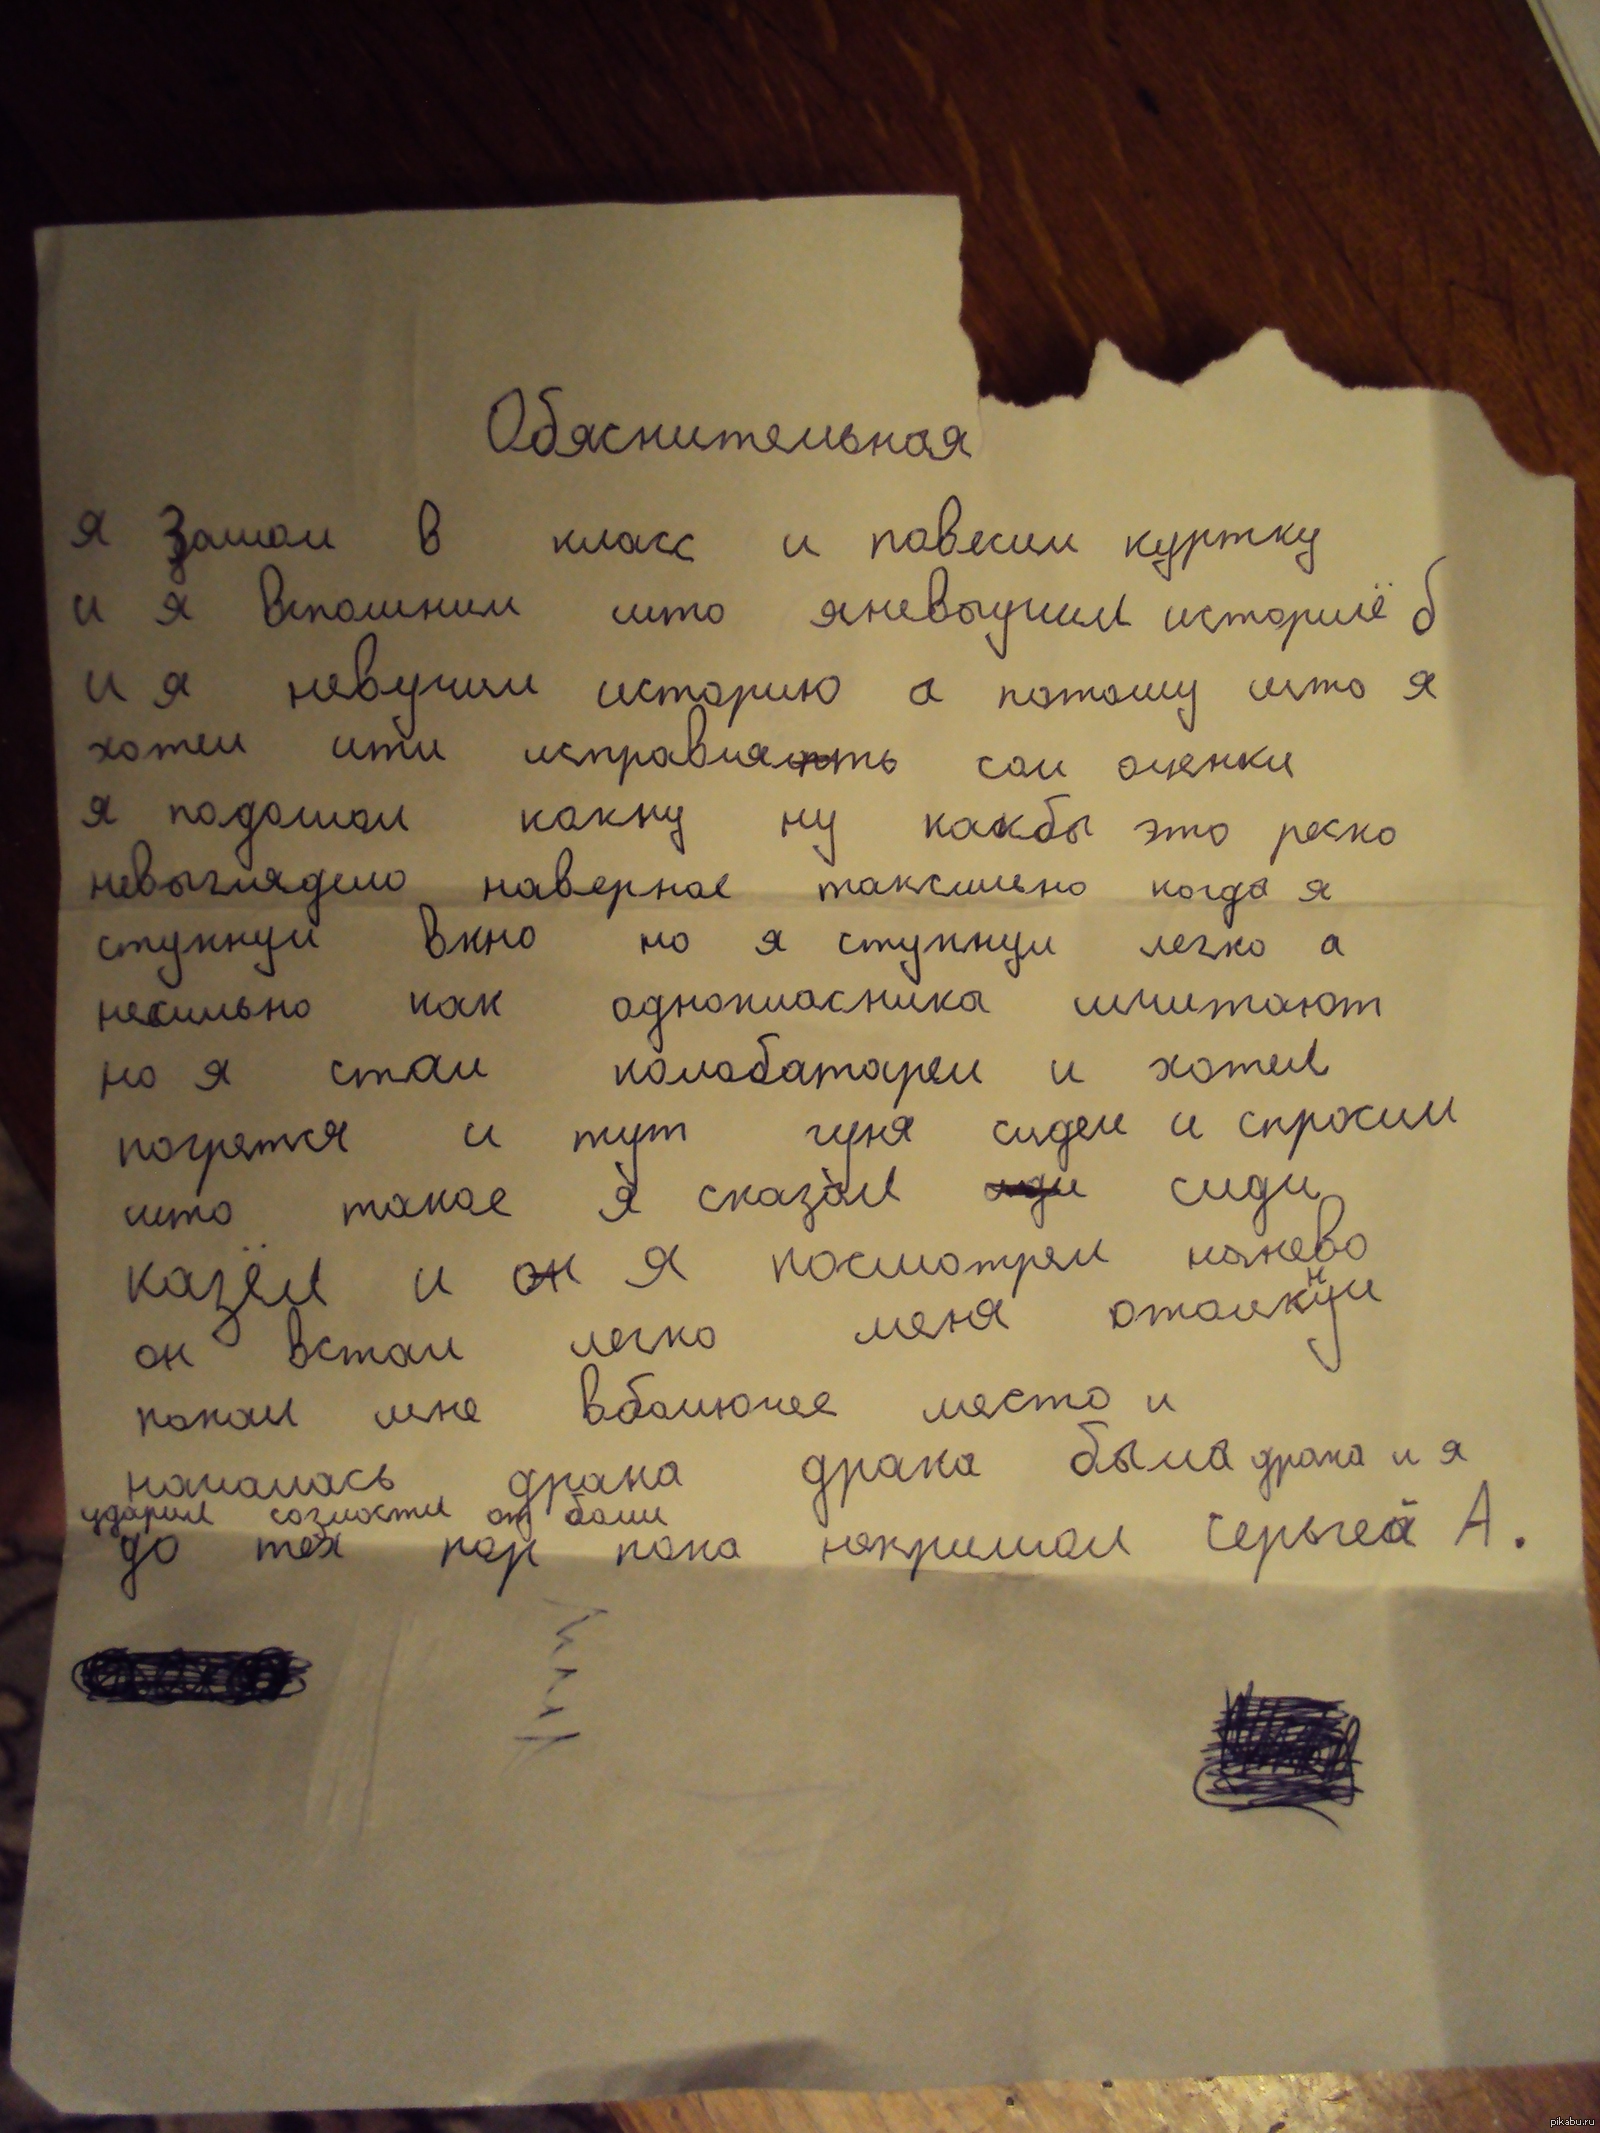 Обяснительная
я зашол в класс и повесил куртку
и я вспомнил што яневыучил историё б
и я невучил историю а потому што я
хотел ити исправлять сои оценки
я подошол кокну ну какбы это реско
невыглядело навернае таксильно когда я
стукнул вкно но я стукнул легко а
несильно как однокласника шчитают
но я стал колобатареи и хотел
погрется и тут гуня сидел и спросил
што такое я сказал сиди
казёл и он я посмотрел нанево
он встал легко меня отолкнул
попал мне вболючее место и
началась драка драка была драка и я
ударил созлости от боли
до тех пор пока накришол серьгей А.
pikabu.ru